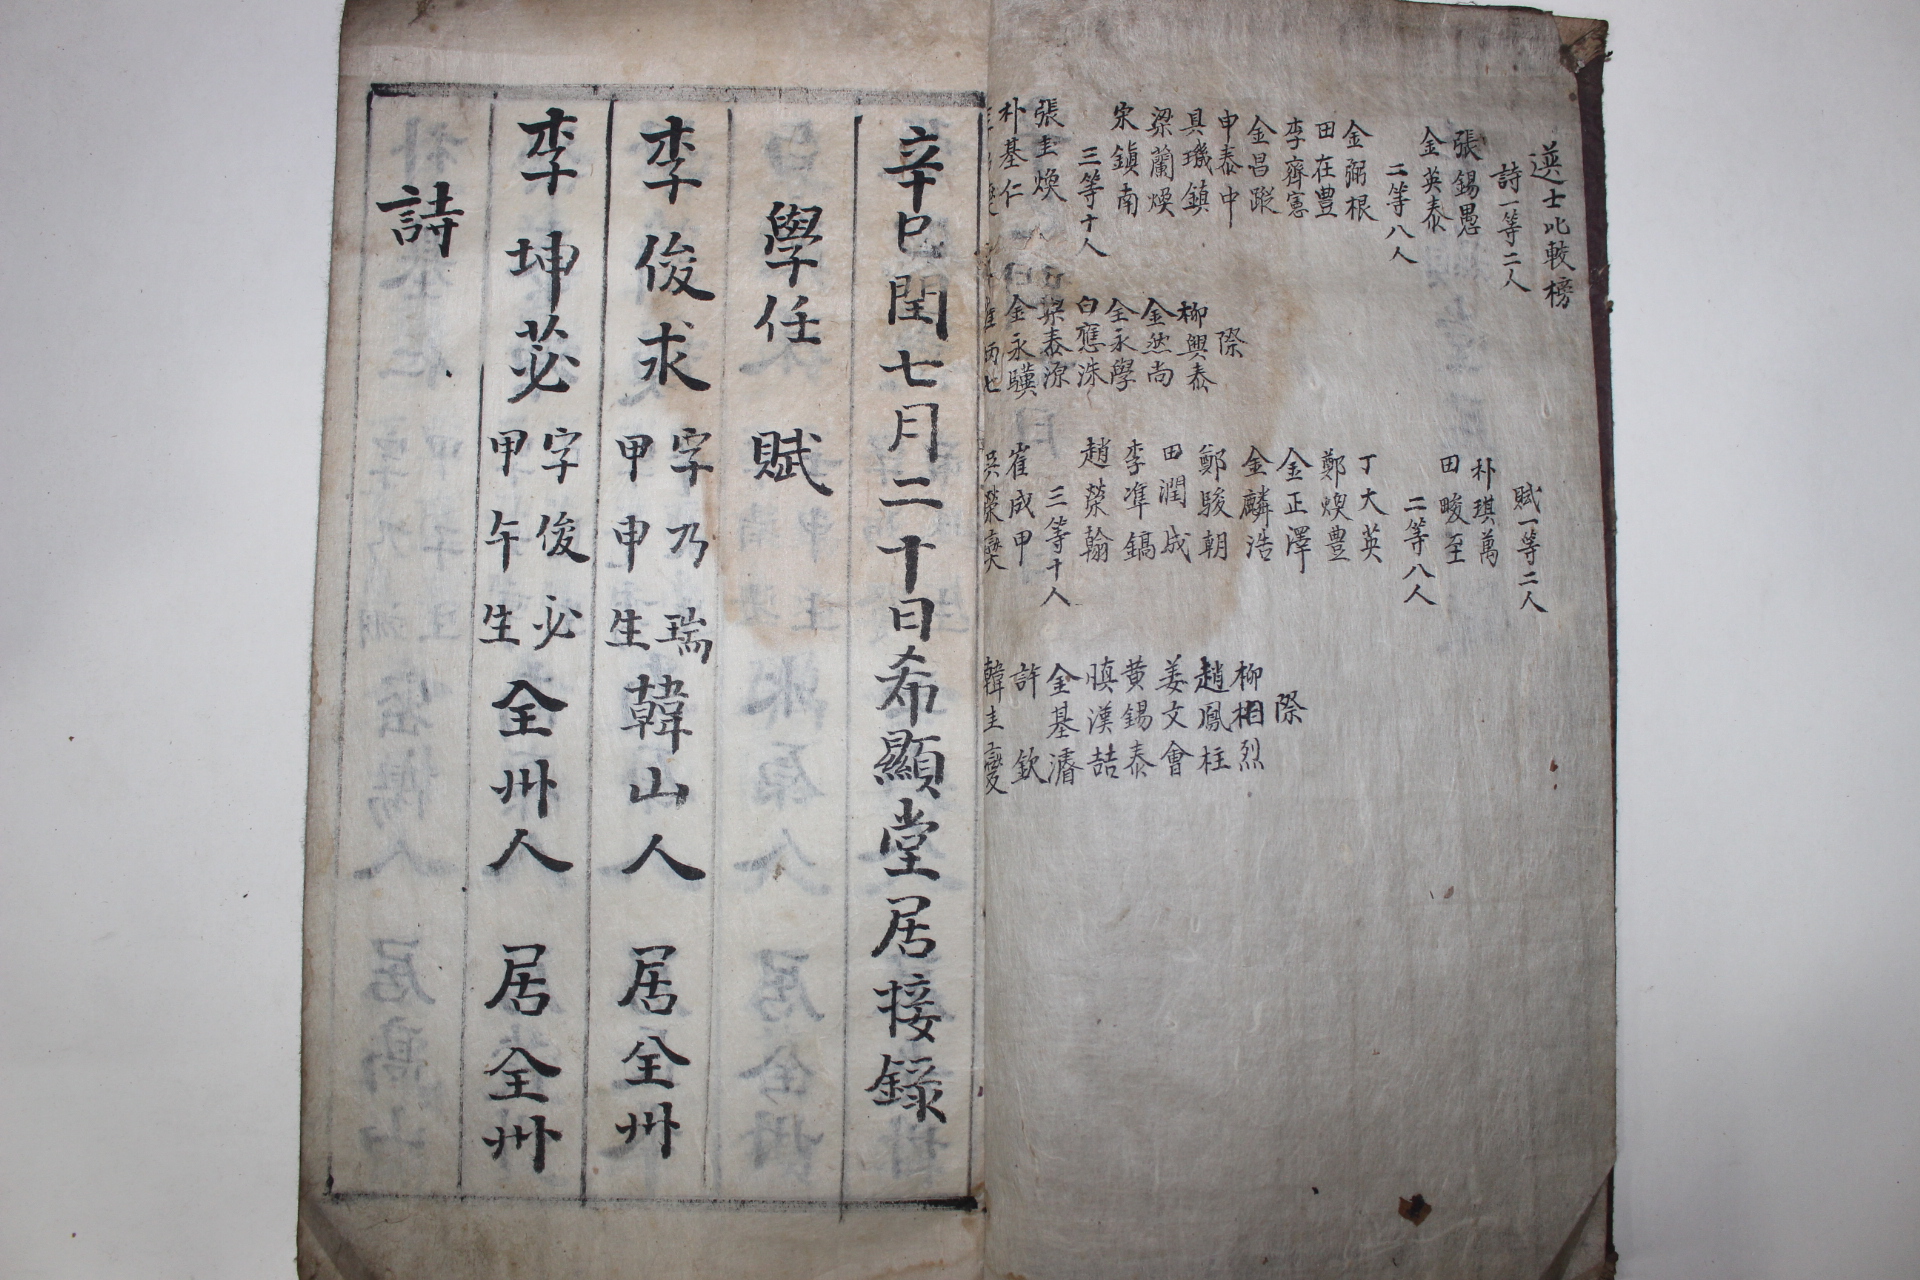 選士比較榜
詩一等二人
張錫愚
金英泰
二等八人
金弼根
田在豊
李齊憲
金昌蹤
申泰中
具璣鎮
梁蘭煥
宋鎭南
三等十人
張圭煥
朴基仁
際
柳興泰
金然尚
全永學
白應洙
梁泰源
金永驥
賦一等二人
朴琪萬
田畯至
二等八人
丁大英
鄭煥豊
金正澤
金麟浩
鄭駿朝
田潤成
李凖鎬
趙榮翰
三等十人
崔成甲
吳榮
際
柳相烈
趙鳳柱
姜文會
黄錫泰
愼漢喆
金基濬
許欽
韓圭燮
辛巳閏七月二十日希顯堂居接錄
學任 賦
李俊求 字乃瑞 甲申生 韓山人 居全州
李坤苾 字俊必 甲午生 全州人 居全州
詩